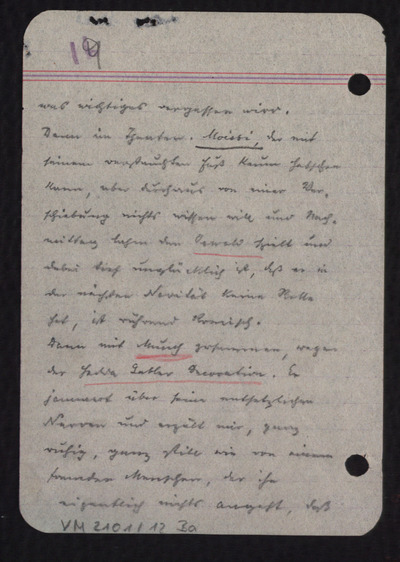 19
was wichtiges vergessen wird.
Dann im Theater. Moissi, der mit
seinem verstauchten Fuß kaum hatschen
kann, aber durchaus von einer Ver-
schiebung nichts wissen will und Nach-
mittag lahm den Oswald spielt und
dabei tief unglücklich ist, daß er in
der nächsten Novität keine Rolle
hat, ist rührend komisch.
Dann mit Munch zusammen, wegen
der Hedda Gabler Decoration. Er
jammert über seine entsetzlichen
Nerven und erzält mir, ganz
ruhig, ganz still wie von einem
fremden Menschen, der ihn
eigentlich nichts angeht, daß
VM 2101/12 Ba